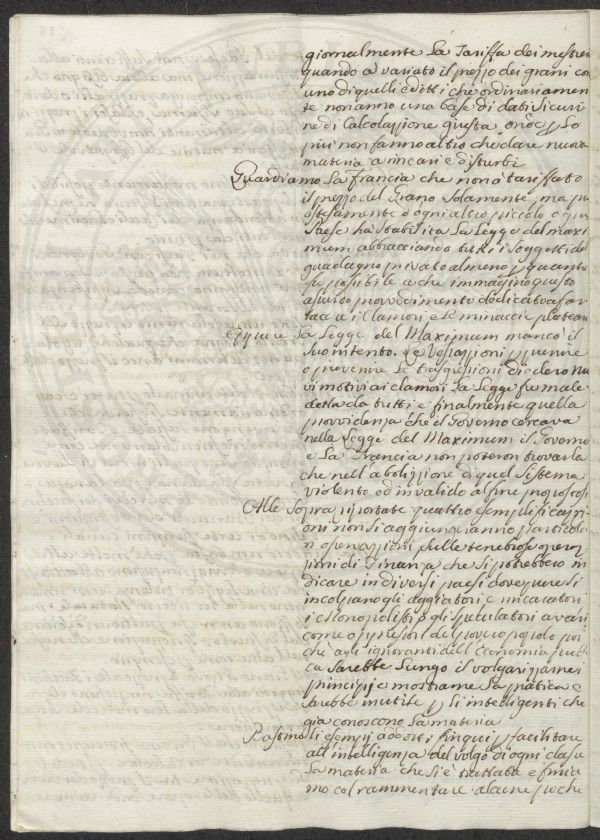 giornalmente la Tariffa dei mestieri
quando a variato il prezzo dei grani con
uno di quelli editti che ordinariamen
te non anno una base di dati sicuri
ne di Calcolazione questa onde p lo
piu non fanno altro che dare nuova
materia a rincari e disturbi
Guardiamo la Francia che non à tariffato
il prezzo del Grano solamente, ma
ostesamente o ogni altro piccolo e
Paese ha stabilita la Legge del maxi
mum abbracciando tutti i soggetti di
guadagno privato almeno p quanto
fu possibile a che immagino questo
assurdo provvedimento dedicato a for
tacere i clamori e le minaccie plateali
Eppure la Legge del Maximum mancò il
suo intento. Le vessazioni p punire
o prevenire le trasgressioni diedero nu
vi motivi ai clamori la Legge fu male
detta da tutti e finalmente quella
provvidenza che il Governo cercava
nella Legge del Maximum il Governo
e la Francia non poteron trovarla
che nell'abolizzione di quel Sistema
violento ed invalido al fine propostosi
Alle sopra riportate quattro semplificazzi
oni non si aggiungeranno particola
ri operazzioni sulle tenebrose operaz
zioni di Finanza che si potrebbero in
dicare in diversi paesi dove pure si
incolpano gli Aggiatori e incaricatori
i Monopolisti e gli speculatori avari
come oppressori del povero popolo poi
chè agli ignoranti dell'Economia pubbli
ca sarebbe lungo il volgarizzarne i
principj e mostrarne la pratica e
sarebbe inutile p li intelligenti che
gia conoscono la materia
Bastino li esempj addotti fin qui p facilitare
all'intelligenza del volgo di ogni classe
la materia che si è trattata e finia
mo col rammentare alcune poche